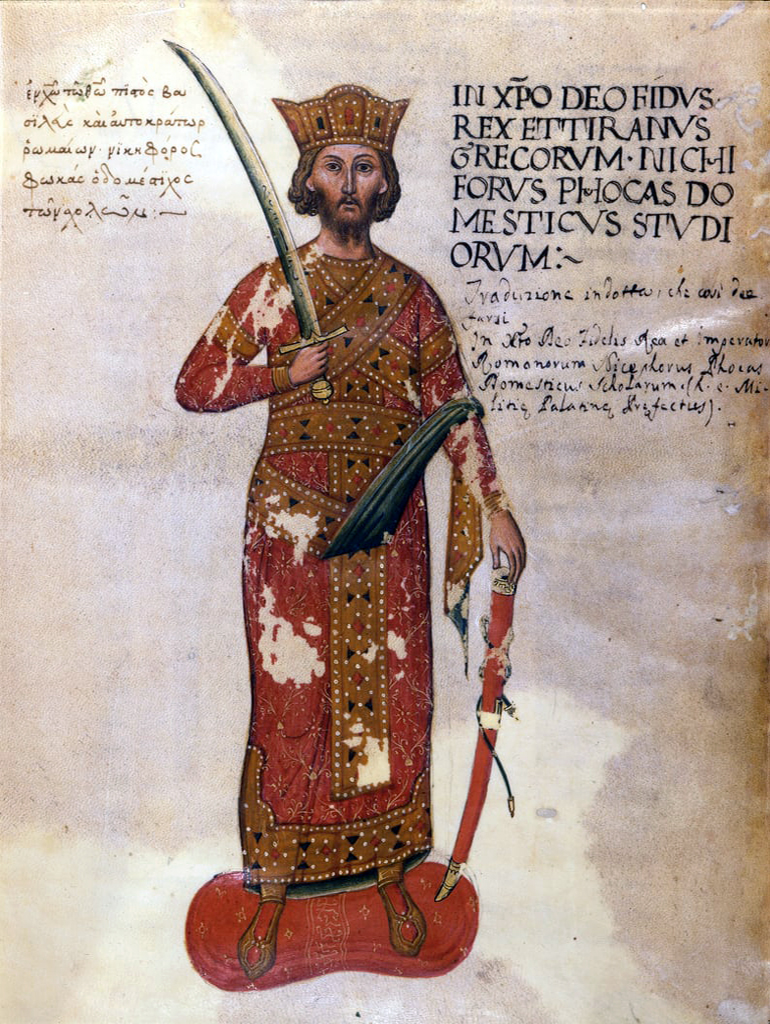 ἐν χῶ τῶ θῶ πιστὸς βα
σιλεὺς καὶ αὐτοκράτωρ
ῥωμαίων· νικηφόρος
φωκάς ὁ δομέστιχος
τῶν σχολῶν :~
IN XP̄O DEO FIDVS·
REX ET TIRANVS
GRECORVM· NICHI
FORVS PHOCAS DO
MESTICVS STVDI
ORVM:~
Traduzione indotta, che così dee
farsi
In Xr̃to Deo Fidelis Rex et Imperator
Romanorum Nicephorus Phocas
Domesticus Scholarum (h. e. Mi-
litię Palatinę Pręfectus).